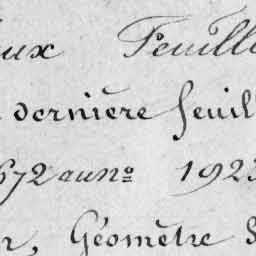 eux Feuille
dernière feuill
672 au nº 1923
r, Géomètre